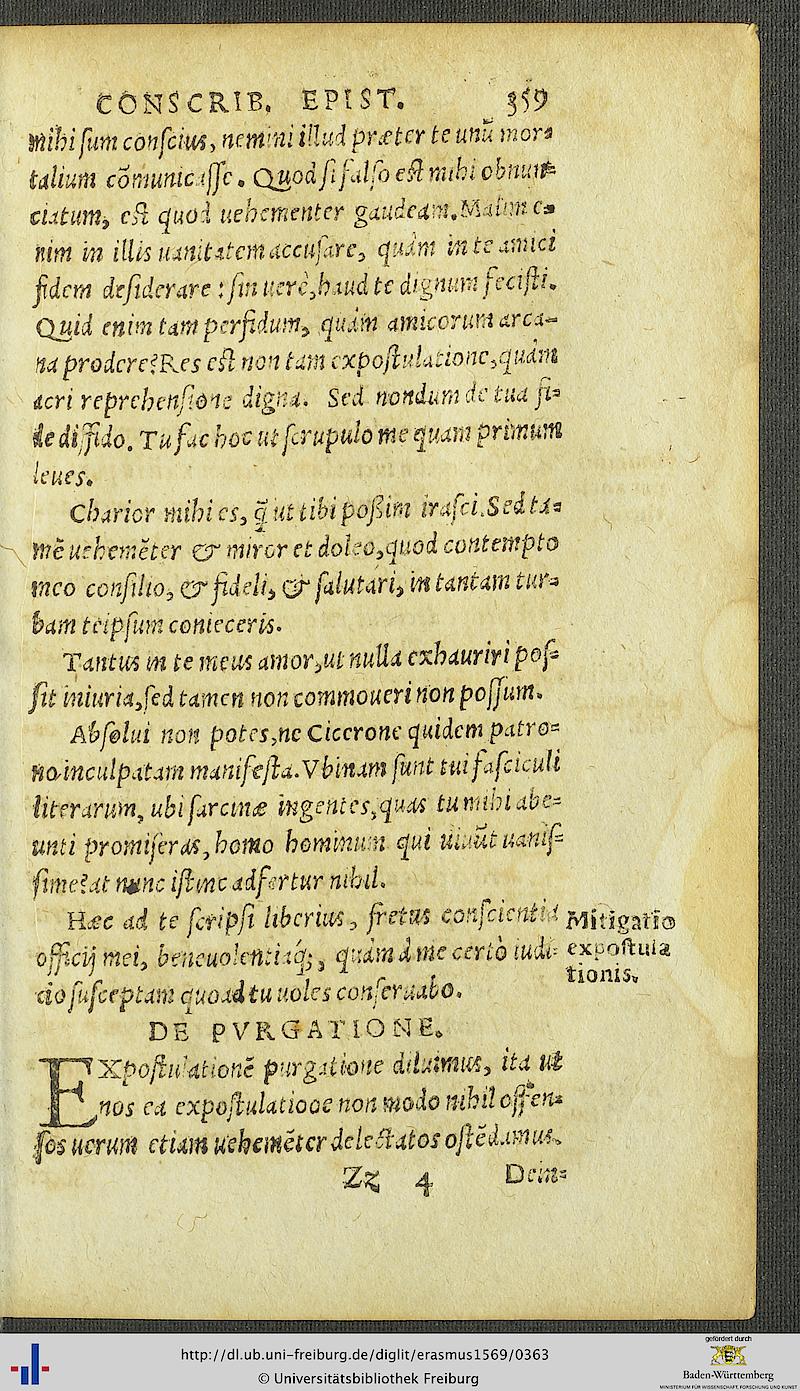 CONSCRIB. EPIST. 359
mihi sum conſcius, nemini illud præter te unū mor-
talium cōmunicaſſe. Quod ſi falſo eſt mihi obnun-
ciatum, eſt quod uehementer gaudeam. Malim e-
nim in illis uanitatem accuſare, quàm in te amici
fidem deſiderare: ſin uerè, haud te dignum feciſti.
Quid enim tam perfidum, quàm amicorum arca-
na prodere? Res eſt non tam expoſtulatione, quàm
acri reprehenſione digna. Sed nondum de tua fi-
de diffido. Tu fac hoc ut ſcrupulo me quam primum
leues.
Charior mihi es, q̄ ut tibi poßim iraſci. Sed ta-
mē uehemēter & miror et doleo, quod contempto
meo conſilio, & fideli, & ſalutari, in tantam tur-
bam teipſum conieceris.
Tantus in te meus amor, ut nulla exhauriri poſ-
ſit iniuria, ſed tamen non commoueri non poſſum.
Abſolui non potes, ne Cicerone quidem patro-
no, inculpatam manifeſta. Vbinam ſunt tui faſciculi
literarum, ubi ſarcinæ ingentes, quas tu mihi abe-
unti promiſeras, homo hominum qui uiuūt uaniſ-
ſime? at nunc iſtinc adfertur nihil.
Hæc ad te ſcripſi liberius, fretus conſcientia
officij mei, beneuolentiáq;, quàm à me certò iudi-
cio ſuſceptam quoad tu uoles conſeruabo.
Mitigatio
expoſtula
tionis.
DE PVRGATIONE.
EXpoſtulationē purgatione diluimus, ita ut
nos ea expoſtulatiooe non modo nihil offen-
ſos uerum etiam uehemēter delectatos oſtēdamus.
Zz 4 Dein-
http://dl.ub.uni-freiburg.de/diglit/erasmus1569/0363
© Universitätsbibliothek Freiburg
gefördert durch
Baden-Württemberg
MINISTERIUM FÜR WISSENSCHAFT, FORSCHUNG UND KUNST